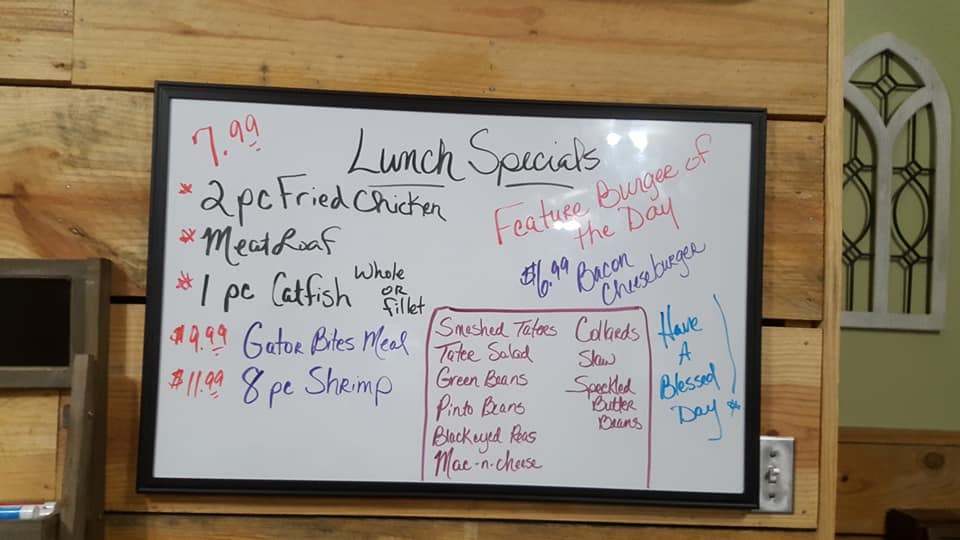 7.99
Lunch Specials
* 2 pc Fried Chicken
* Meat Loaf
* 1 pc Catfish Whole
OR
fillet
$9.99 Gator Bites Meal
$11.99 8 pc Shrimp
Feature Burger of
the Day
$6.99 Bacon
Cheeseburger
Smashed Tatoes
Tatee Salad
Green Beans
Pinto Beans
Blackeyed Peas
Mac-n-cheese
Collards
Slaw
Speckled
Butter
Beans
Have
A
Blessed
Day *